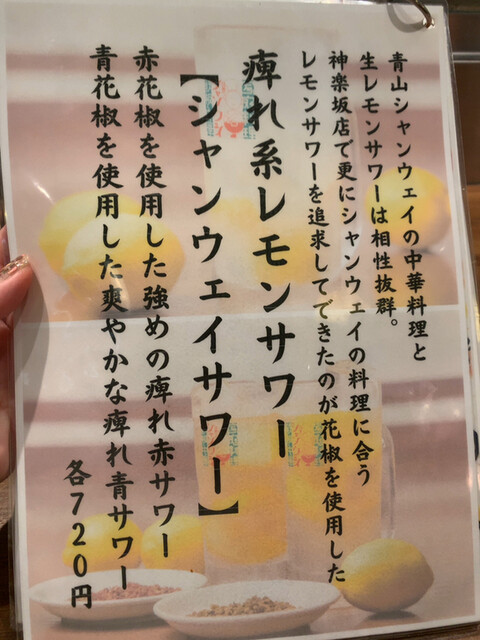 青山シャンウェイの中華料理と
生レモンサワーは相性抜群。
神楽坂店で更にシャンウェイの料理に合う
レモンサワーを追求してできたのが花椒を使用した
痺れ系レモンサワー
【シャンウェイサワー】
赤花椒を使用した強めの痺れ赤サワー
青花椒を使用した爽やかな痺れ青サワー
各720円